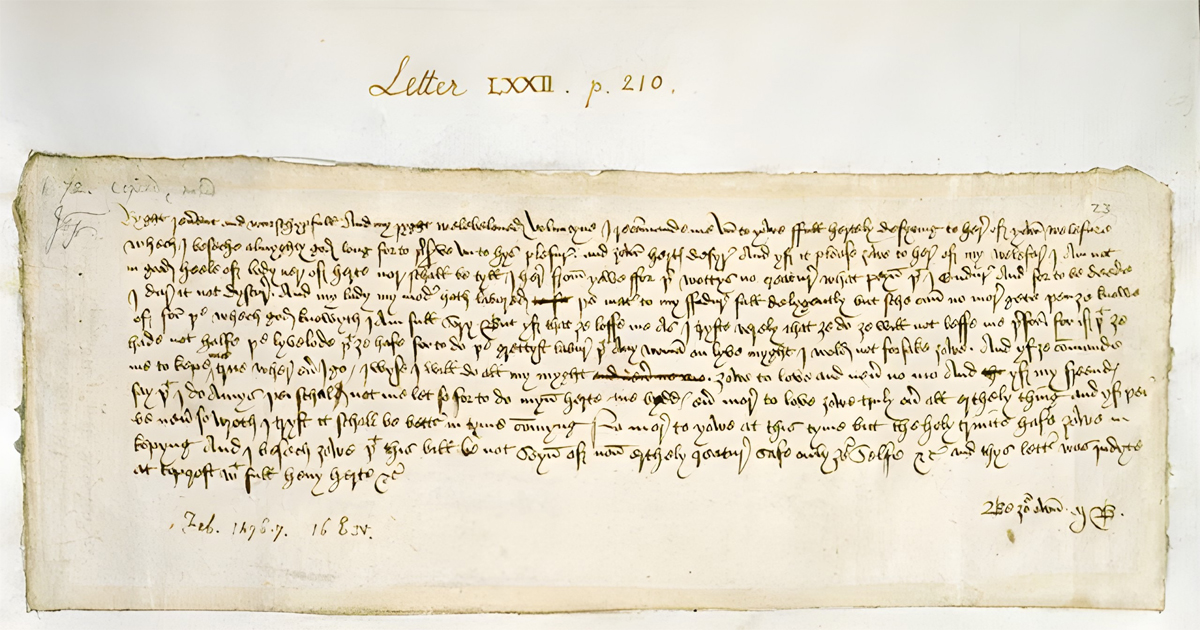 Letter LXXII. p. 210.
72. copied
23
Ryght reverent and wurschypfull And my ryght welebeloued Voluntyne I recommande me vn to yowe ffull hertely desyring to here of yowr welefare
whech I beseche almyghty god long for to preserve vn to hys plesure and yowr hertys desyre And yf it please yowe to here of my welefare I Am not
in good heele of body ner of herte nor schall be tyll I here from yowe ffor þer wottys no creature what peyn þat I endure And for to be deede
I dare it not dyscure And my lady my moder hath labored þe mater to my ffadure full delygently but sche can no more gete þen ȝe knowe
of for þe whech god knowyth I Am full sory But yf that ȝe loffe me As I tryste verely that ȝe do ȝe will not leffe me þerfor for if þat ȝe
hade not halfe þe lyvelode þat ȝe hafe for to do þe grettyst labure þat Any woman on lyve myght I wold not forsake yowe And yf ȝe commande
me to kepe me true wher euer I go I wyse I will do all my myght yowe to love and neuer no mo And yf my freendys
say þat I do Amys þei schal not me let so for to do myn herte me byddys euer more to love yowe truly ouer all erthely thing and yf þei
be neuer so wroth I tryst it schall be better in tyme commyng No more to yowe at this tyme but the holy trinite hafe yowe in
kepyng And I besech yowe þat this bill be not seyn of non erthely creature safe only ȝour selfe &c and thys letter was indyte
at topcroft wt full hevy herte &c
Be ȝour own M B.
Feb. 1476-7. 16 E IV.